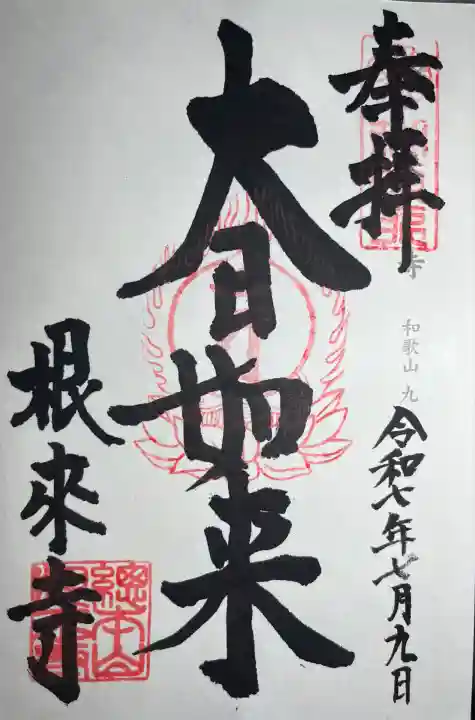 奉拝
寺 和歌山 九
令和七年七月九日
大日如来
根来寺
總本山